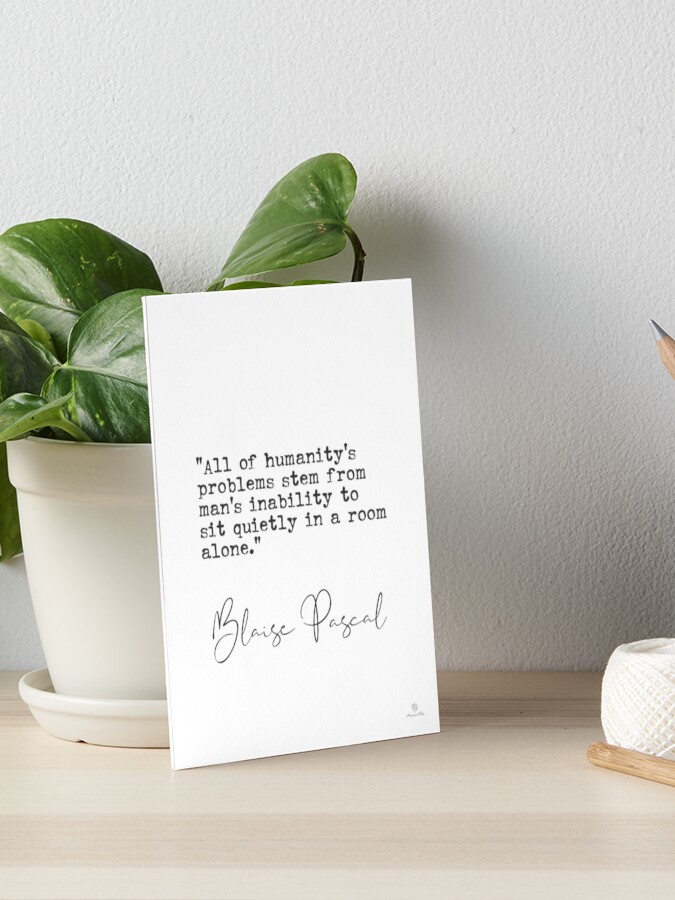 "All of humanity's
problems stem from
man's inability to
sit quietly in a room
alone."
Blaise Pascal